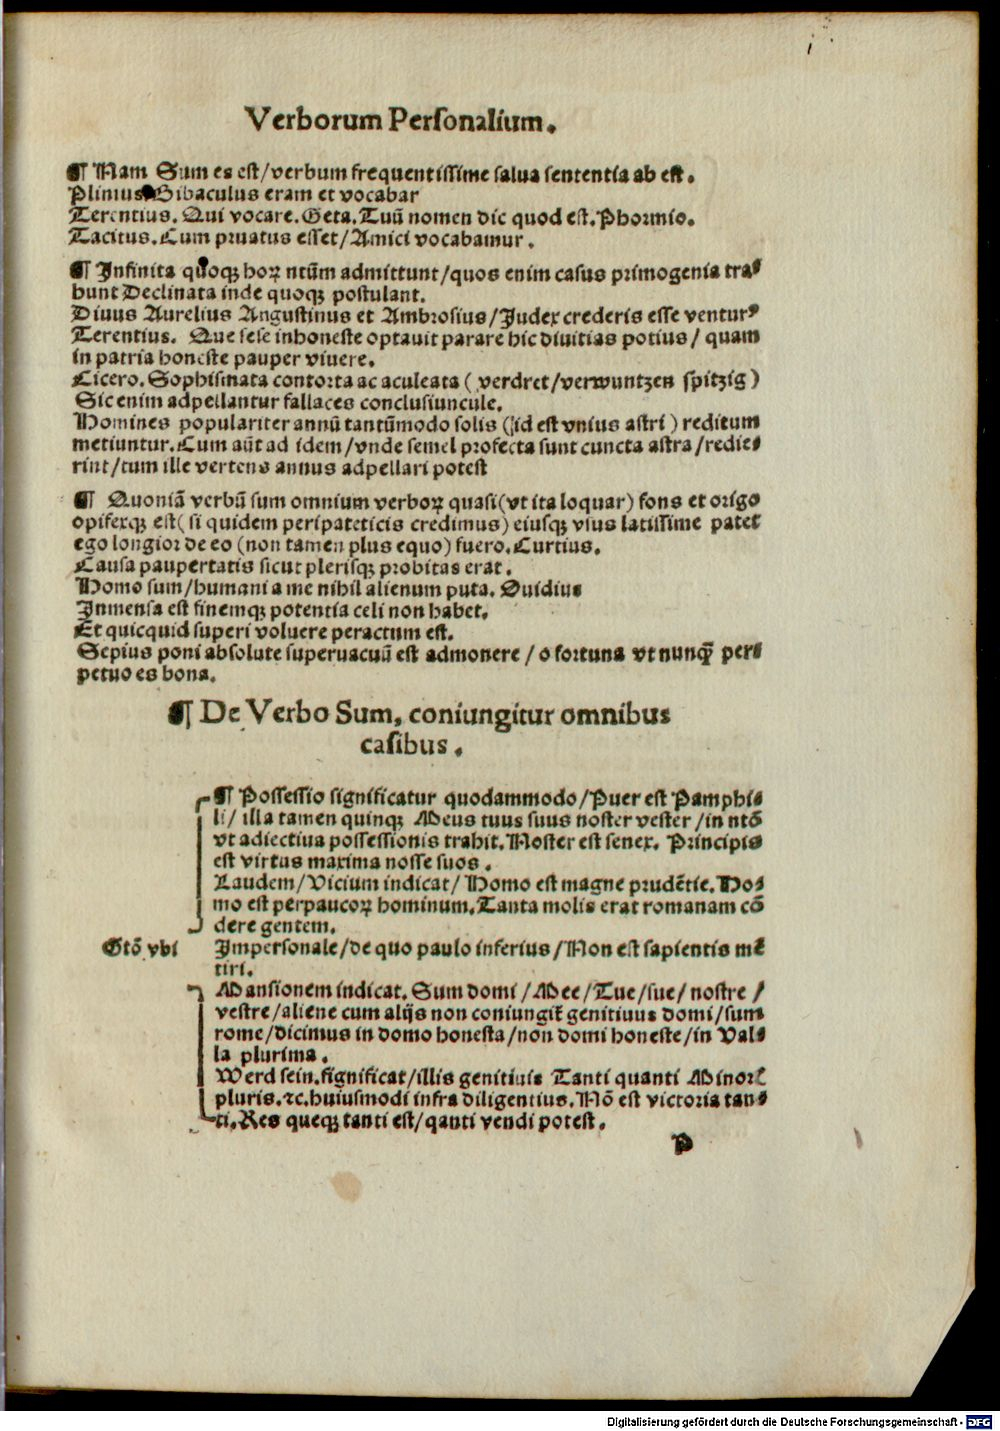 Verborum Personalium.
¶ Nam Sum es est/verbum frequentissime salua sententia ab est.
Plinius. Bibaculus eram et vocabar
Terentius. Qui vocare. Geta. Tuū nomen dic quod est. Phormio.
Tacitus. Cum priuatus esset/Amici vocabamur.
¶ Infinita quoqꝫ hoꝝ ntūm admittunt/quos enim casus primogenia tra⸗
hunt Declinata inde quoqꝫ postulant.
Diuus Aurelius Angustinus et Ambrosius/Judex crederis esse ventur⁹
Terentius. Que sese inhoneste optauit parare hic diuitias potius/ quam
in patria honeste pauper viuere.
Cicero. Sophismata contorta ac aculeata ( verdret/verwuntzen spitzig )
Sic enim adpellantur fallaces conclusiuncule.
Homines populariter annū tantūmodo solis (id est vnius astri) reditum
metiuntur. Cum aūt ad idem/vnde semel profecta sunt cuncta astra/redie⸗
rint/tum ille vertens annus adpellari potest
¶ Quoniā verbū sum omnium verboꝝ quasi(vt ita loquar) fons et origo
opifexqꝫ est( si quidem peripateticis credimus) eiusqꝫ vsus latissime patet
ego longior de eo (non tamen plus equo) fuero. Curtius.
Causa paupertatis sicut plerisqꝫ probitas erat.
Homo sum/humani a me nihil alienum puta. Ouidius
Inmensa est finemqꝫ potentia celi non habet.
Et quicquid superi voluere peractum est.
Sepius poni absolute superuacuū est admonere / o fortuna vt nunqꝫ̄ per⸗
petuo es bona.
¶ De Verbo Sum, coniungitur omnibus
casibus.
¶ Possessio significatur quodammodo/Puer est Pamphi⸗
li/ illa tamen quinqꝫ Meus tuus suus noster vester/in ntō
vt adiectiua possessionis trahit. Noster est senex. Principis
est virtus maxima nosse suos.
Laudem/Vicium indicat/ Homo est magne prudētie. Ho⸗
mo est perpaucoꝝ hominum. Tanta molis erat romanam cō
dere gentem.
Gtō vbi Impersonale/de quo paulo inferius/Non est sapientis mē
tiri.
Mansionem indicat. Sum domi/Mee/Tue/sue/ nostre /
vestre/aliene cum alijs non coniungit᷑ genitiuus domi/sum
rome/dicimus in domo honesta/non domi honeste/in Val⸗
la plurima.
Werd sein. significat/illis genitiuis Tanti quanti Minoris
pluris. ⁊c. huiusmodi infra diligentius. Nō est victoria tan⸗
ti. Res queqꝫ tanti est/qanti vendi potest.
P
Digitalisierung gefördert durch die Deutsche Forschungsgemeinschaft - DFG